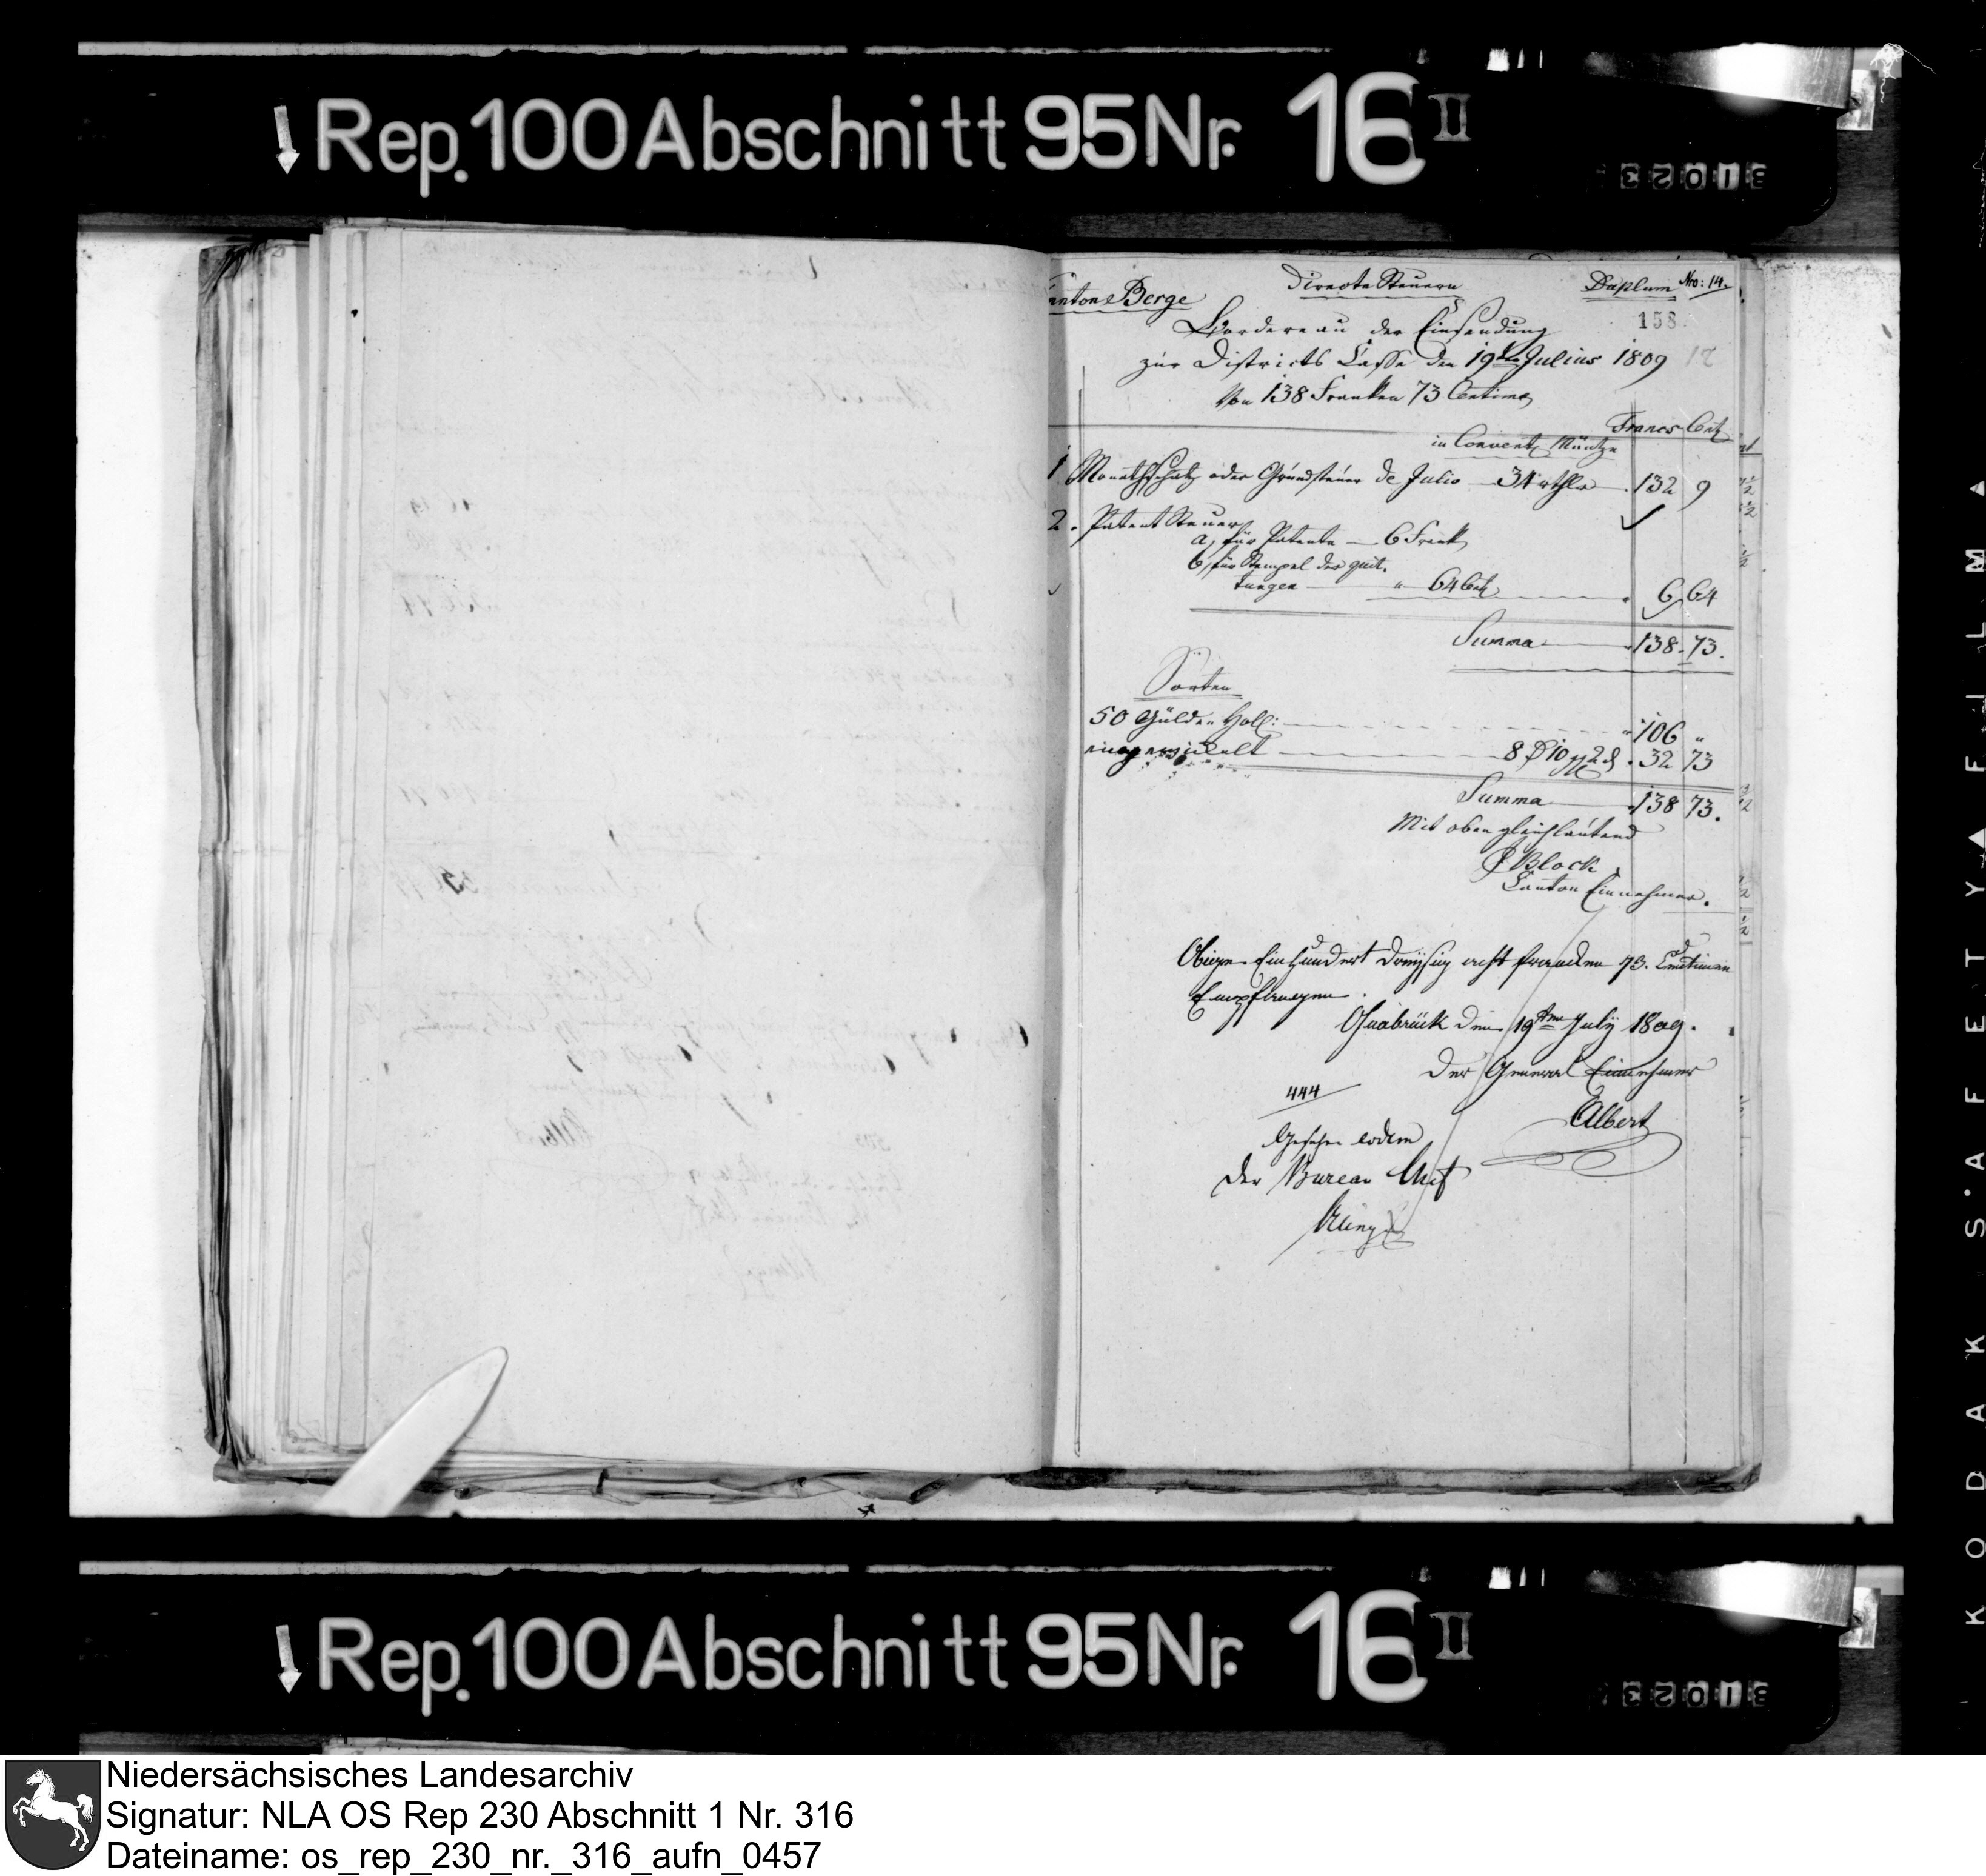 Rep. 100 Abschnitt 95 Nr. 16 II
Cantons Berge
Directe Steuern
Duplum Nro: 14.
158
Bordereau der Einsendung
zur Districts Casse den 19ten Julius 1809
Von 138 Franken 73 Centimes
Francs Cent
in Convent. Müntze
1 Monathschatz oder Grundsteuer de Julio 34 rthlr 132 9
2. Patent Steuer
a, für Patente 6 Frank
b, für Stempel der quit-
tungen " 64 Cent 6 64
Summa 138. 73.
Sorten
50 Gulden Holl: 106 "
eingewickelt 32 73
Summa 138 73.
Mit oben gleichlautend
Block
Canton Einnehmer.
Obige Einhundert dreyssig acht francken 73. Centimen
Empfangen.
Osnabrück den 19ten July 1809.
Der General Einnehmer
Albert
444
Gesehen eodem
Der Bureau Chef
KODAK S.A F E T Y ▲ F I L M ▲
Rep. 100 Abschnitt 95 Nr. 16 II
Niedersächsisches Landesarchiv
Signatur: NLA OS Rep 230 Abschnitt 1 Nr. 316
Dateiname: os_rep_230_nr._316_aufn_0457